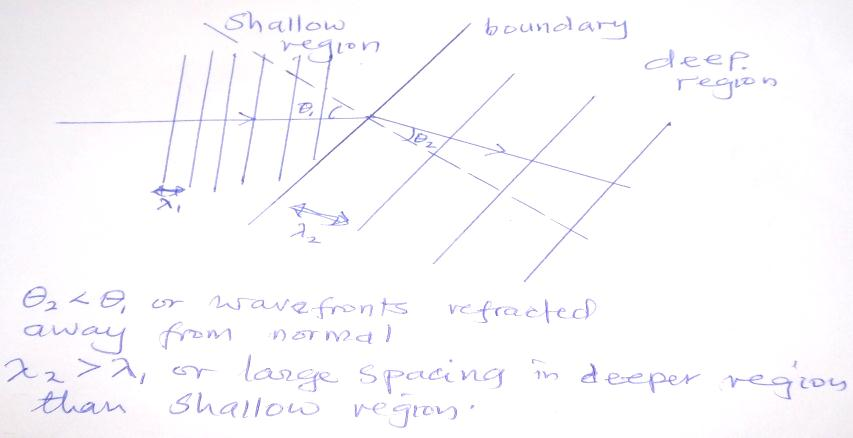 Shallow
region
boundary
deep.
region
θ₁
θ₂
λ₁
λ₂
θ₂ < θ₁ or wavefronts refracted
away from normal
λ₂ > λ₁ or large spacing in deeper region
than shallow region.